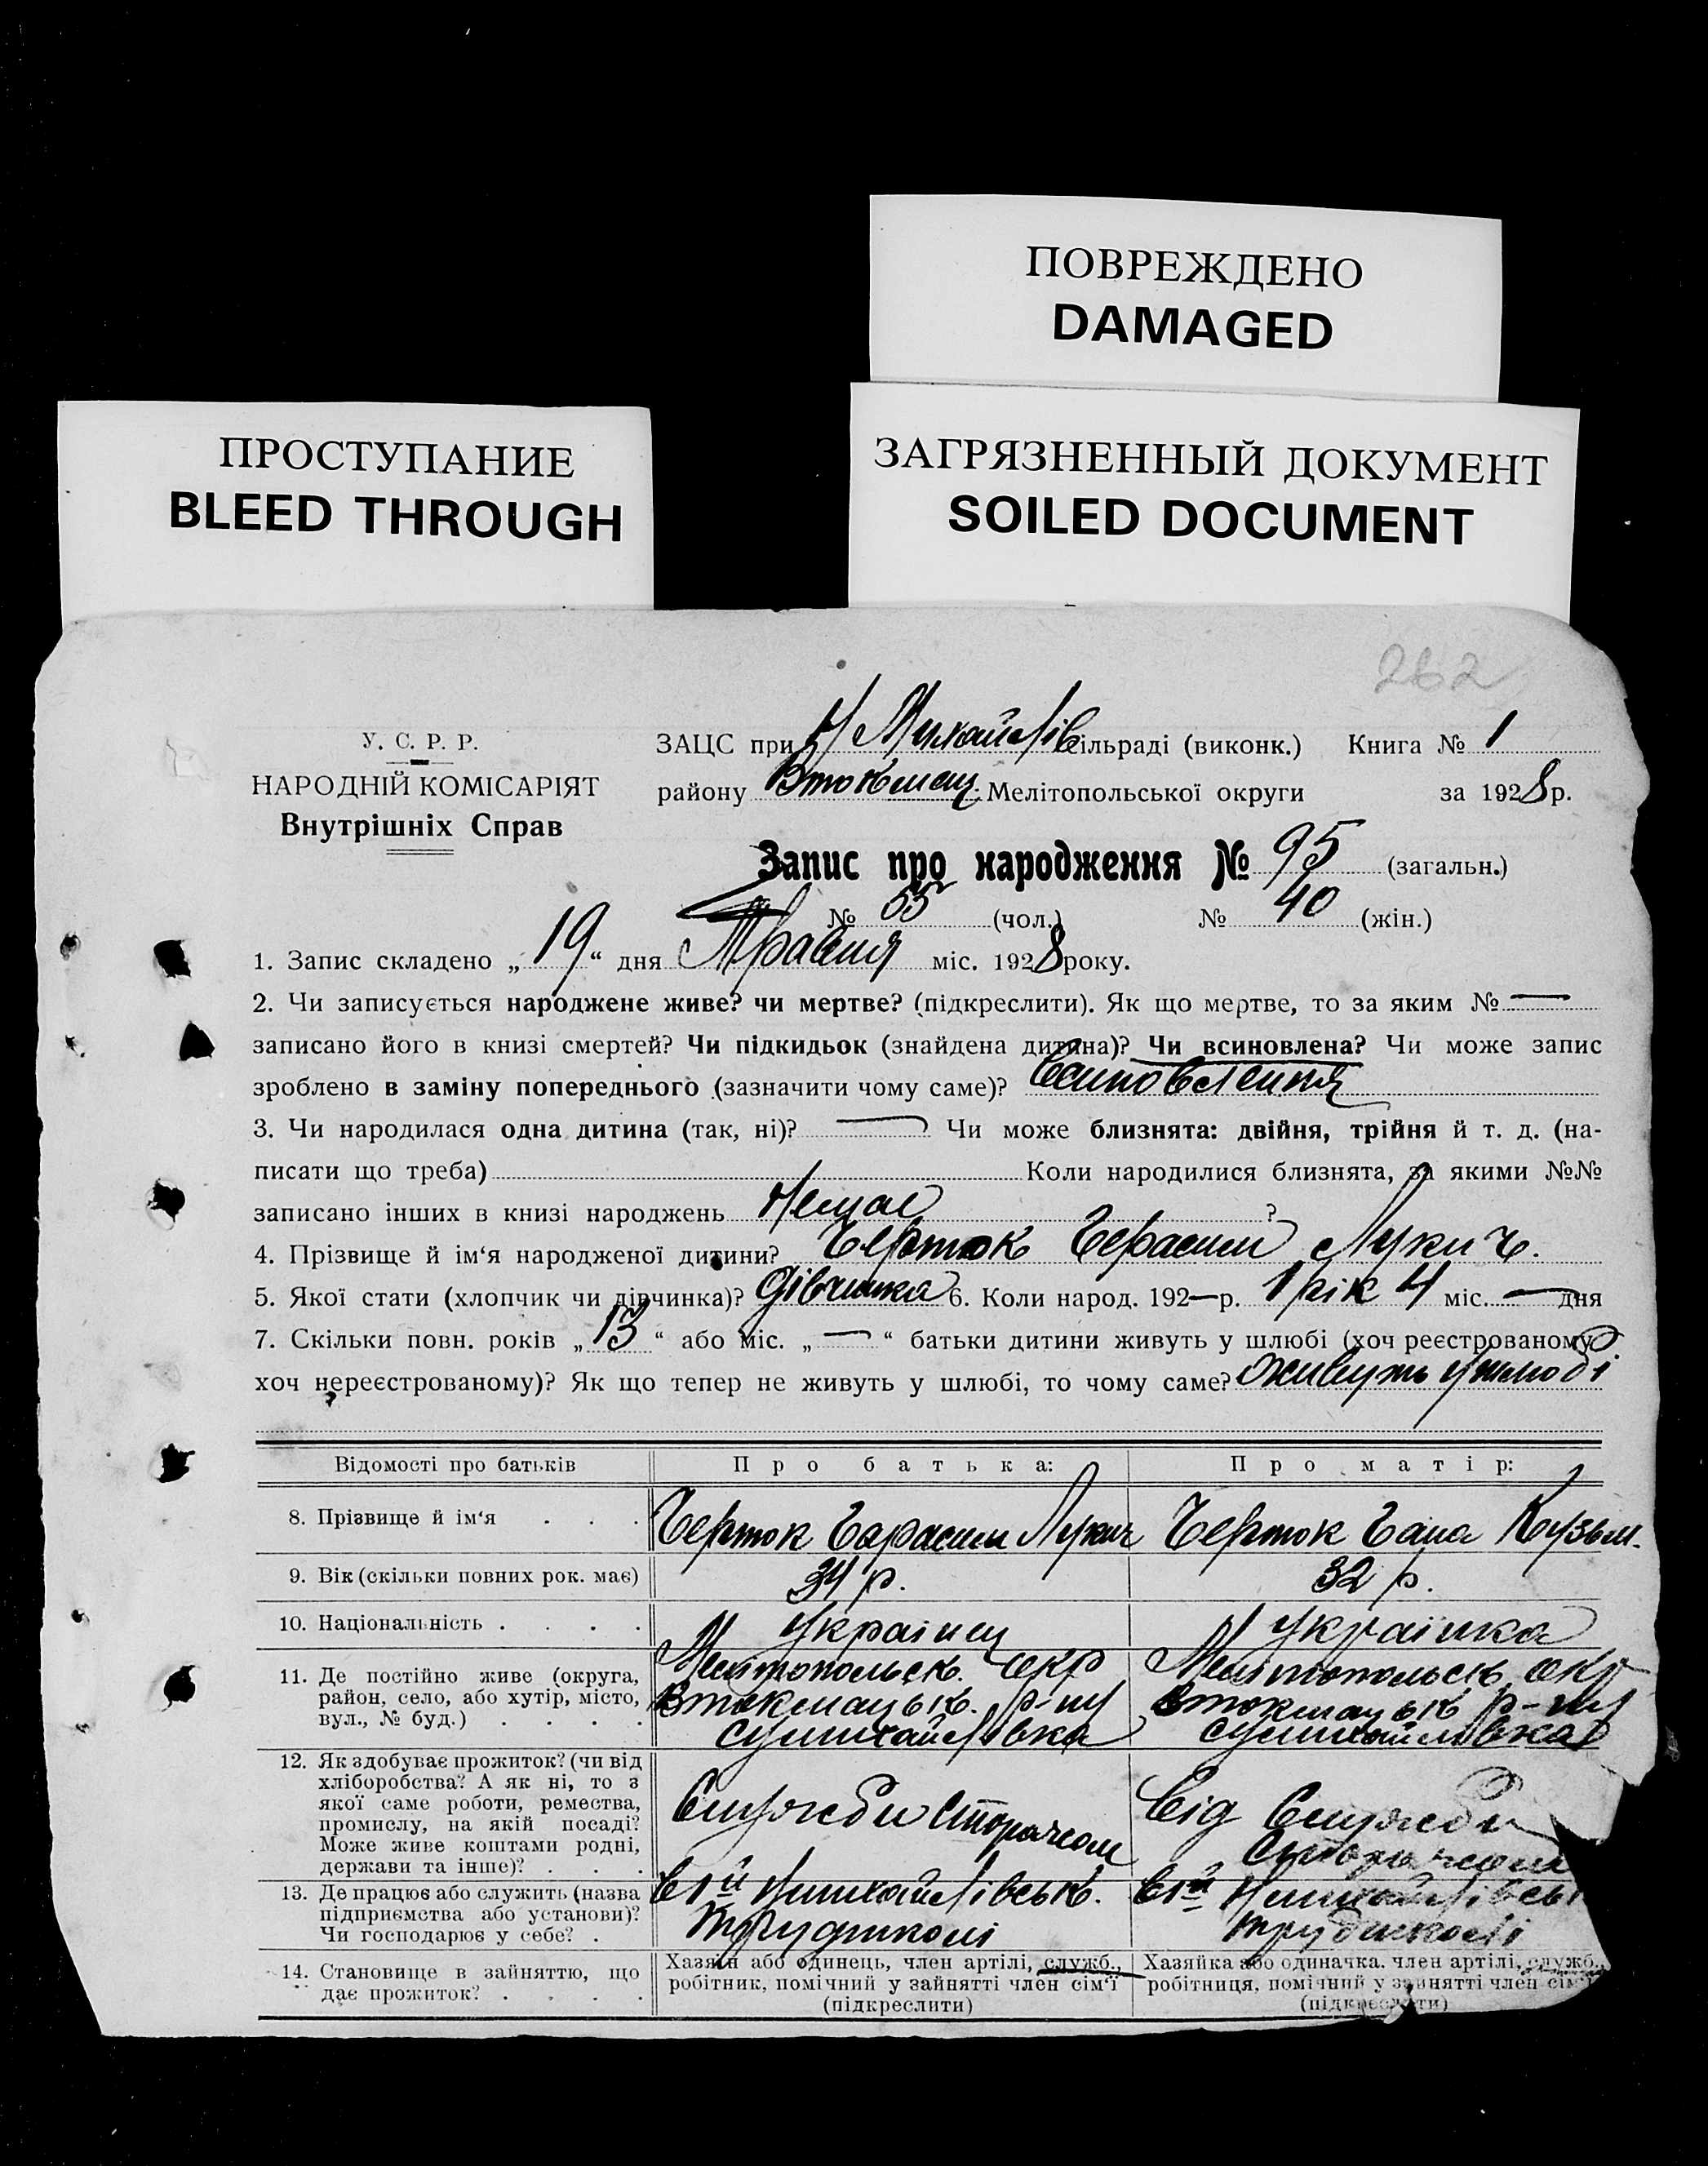 ПОВРЕЖДЕНО
DAMAGED
ПРОСТУПАНИЕ
BLEED THROUGH
ЗАГРЯЗНЕННЫЙ ДОКУМЕНТ
SOILED DOCUMENT
262
У. С. Р. Р.
НАРОДНІЙ КОМІСАРІЯТ
Внутрішніх Справ
ЗАЦС при Н Михайлів сільраді (виконк.) Книга № 1
району Втокмац. Мелітопольської округи за 1928 р.
Запис про народження № 95 (загальн.)
№ 55 (чол.) № 40 (жін.)
1. Запис складено „ 19 “ дня Травня міс. 1928 року.
2. Чи записується народжене живе? чи мертве? (підкреслити). Як що мертве, то за яким № —
записано його в книзі смертей? Чи підкидьок (знайдена дитина)? Чи всиновлена? Чи може запис
зроблено в заміну попереднього (зазначити чому саме)? Всиновлення
3. Чи народилася одна дитина (так, ні)? — Чи може близнята: двійня, трійня й т. д. (на-
писати що треба) Коли народилися близнята, за якими №№
записано інших в книзі народжень Немає ?
4. Прізвище й ім‘я народженої дитини? Черток Герасим Лукич.
5. Якої стати (хлопчик чи дівчинка)? Дівчинка 6. Коли народ. 192—р. 1 рік 4 міс. — дня
7. Скільки повн. років „ 13 “ або міс. „ — “ батьки дитини живуть у шлюбі (хоч реєстрованому,
хоч нереєстрованому)? Як що тепер не живуть у шлюбі, то чому саме? живуть у шлюбі
Відомості про батьків Про батька: Про матір:
8. Прізвище й ім‘я . . . Черток Гарасим Лукич Черток Гана Кузьм.
9. Вік (скільки повних рок. має) 34 р. 32 р.
10. Національність . . . . Українец Українка
11. Де постійно живе (округа, Мелітопольськ. окр Мелітопольськ окр
район, село, або хутір, місто, Втокмацьк. р-ну Втокмацьк р-ну
вул., № буд.) . . . .
12. Як здобуває прожиток? (чи від
хліборобства? А як ні, то з
якої саме роботи, ремества, Служби Сторожем Від Служби
промислу, на якій посаді? Сторожем
Може живе коштами родні,
держави та інше)? . . .
13. Де працює або служить (назва
підприємства або установи)?
Чи господарює у себе? . Трудшколі трудшколі
14. Становище в зайняттю, що Хазяїн або одинець, член артілі, служб., Хазяйка або одиначка. член артілі, служб.,
дає прожиток? . . . . робітник, помічний у зайнятті член сім‘ї робітниця, помічний у зайнятті член сім‘ї
(підкреслити) (підкреслити)